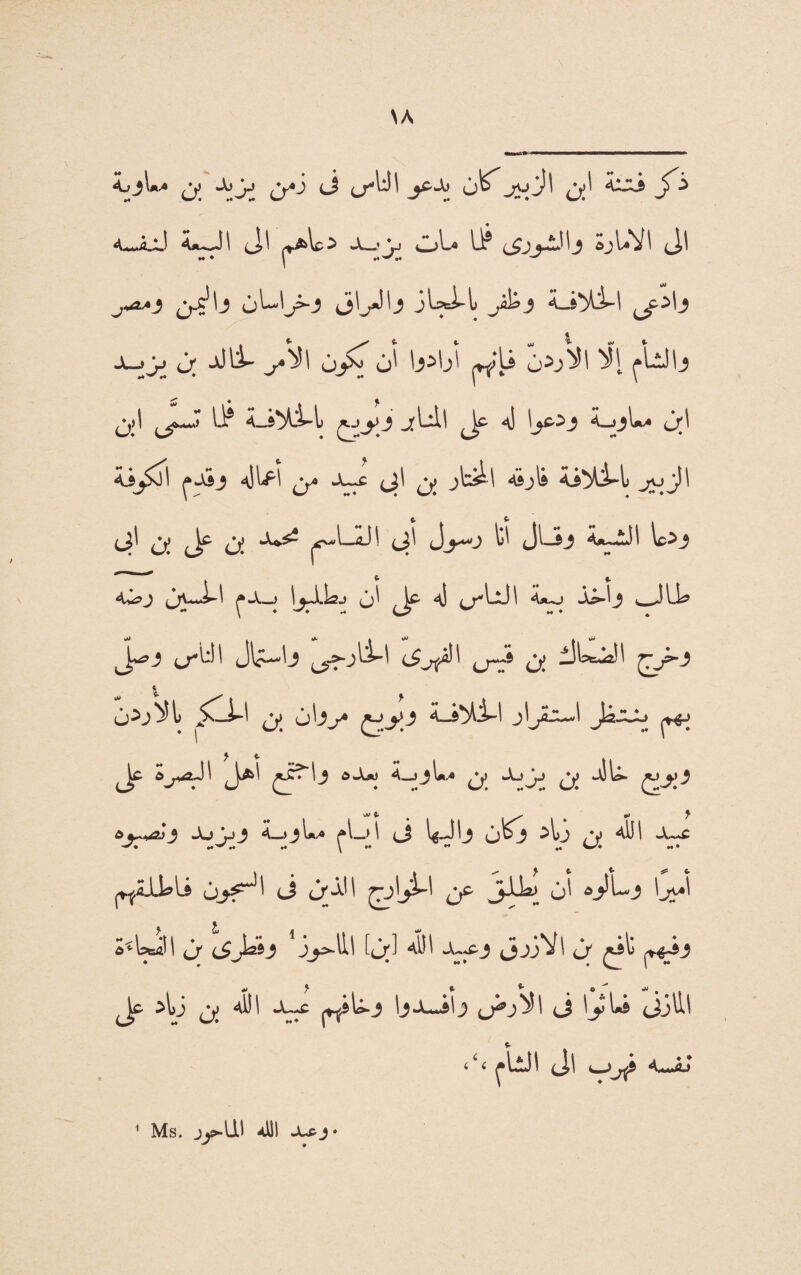 ١٨
ذكر فتنة ابن الزبير كان يدعو الناس فى زمن يزيد بن معاوية
الى الامارة والشورى فلما مات يزيد دعاهم الى البيعة لنفسه
وادّعى الخلافة وظفر بالحجاز والعراق وخراسان واليمن ومصر
والشأم إلّا الأردنّ فإنهم أرادوا أن يكون الأمر لخالد بن يزيد
ابن معاوية ودعوا له على المنابر وبُويع بالخلافة فلما تسمّى ابن
الزبير بالخلافة فارقه المختار بن ابى عُبيد من أعماله وقدم الكوفة
ودعا الشيعة وقال أنا رسول أبى القاسم محمد بن على بن ابى
طالب وأخذ بيعة الناس له على أن يطلبوا بدم الحسين رضّه
وخرج الضحّاك بن قيس الفهرىّ الخارجىّ واستمال الناس وصلّى
بهم ينتظر استقرار الخلافة وبُويع مروان بن الحكم بالأردنّ
وبويع خالد بن يزيد بن معاوية بعده واجتمع أهلُ البصرة على
عُبيد الله بن زياد وكان واليها فى أيّام معاوية ويزيد ونصبوه
أميرًا وسألوه أن يُطلق عن الخوارج الذين فى السجون فاطلقهم
وفيهم نافع بن الأزرق وعبيد الله [بن] الماحوز¹ وقطرىّ بن الفجاءة
المازنىّ فعاثوا فى الأرض وأفسدوا وخافهم عُبيد الله بن زياد على
نفسه فهرب الى الشأم ،،
¹ Ms. وعبد الله الماحوز.